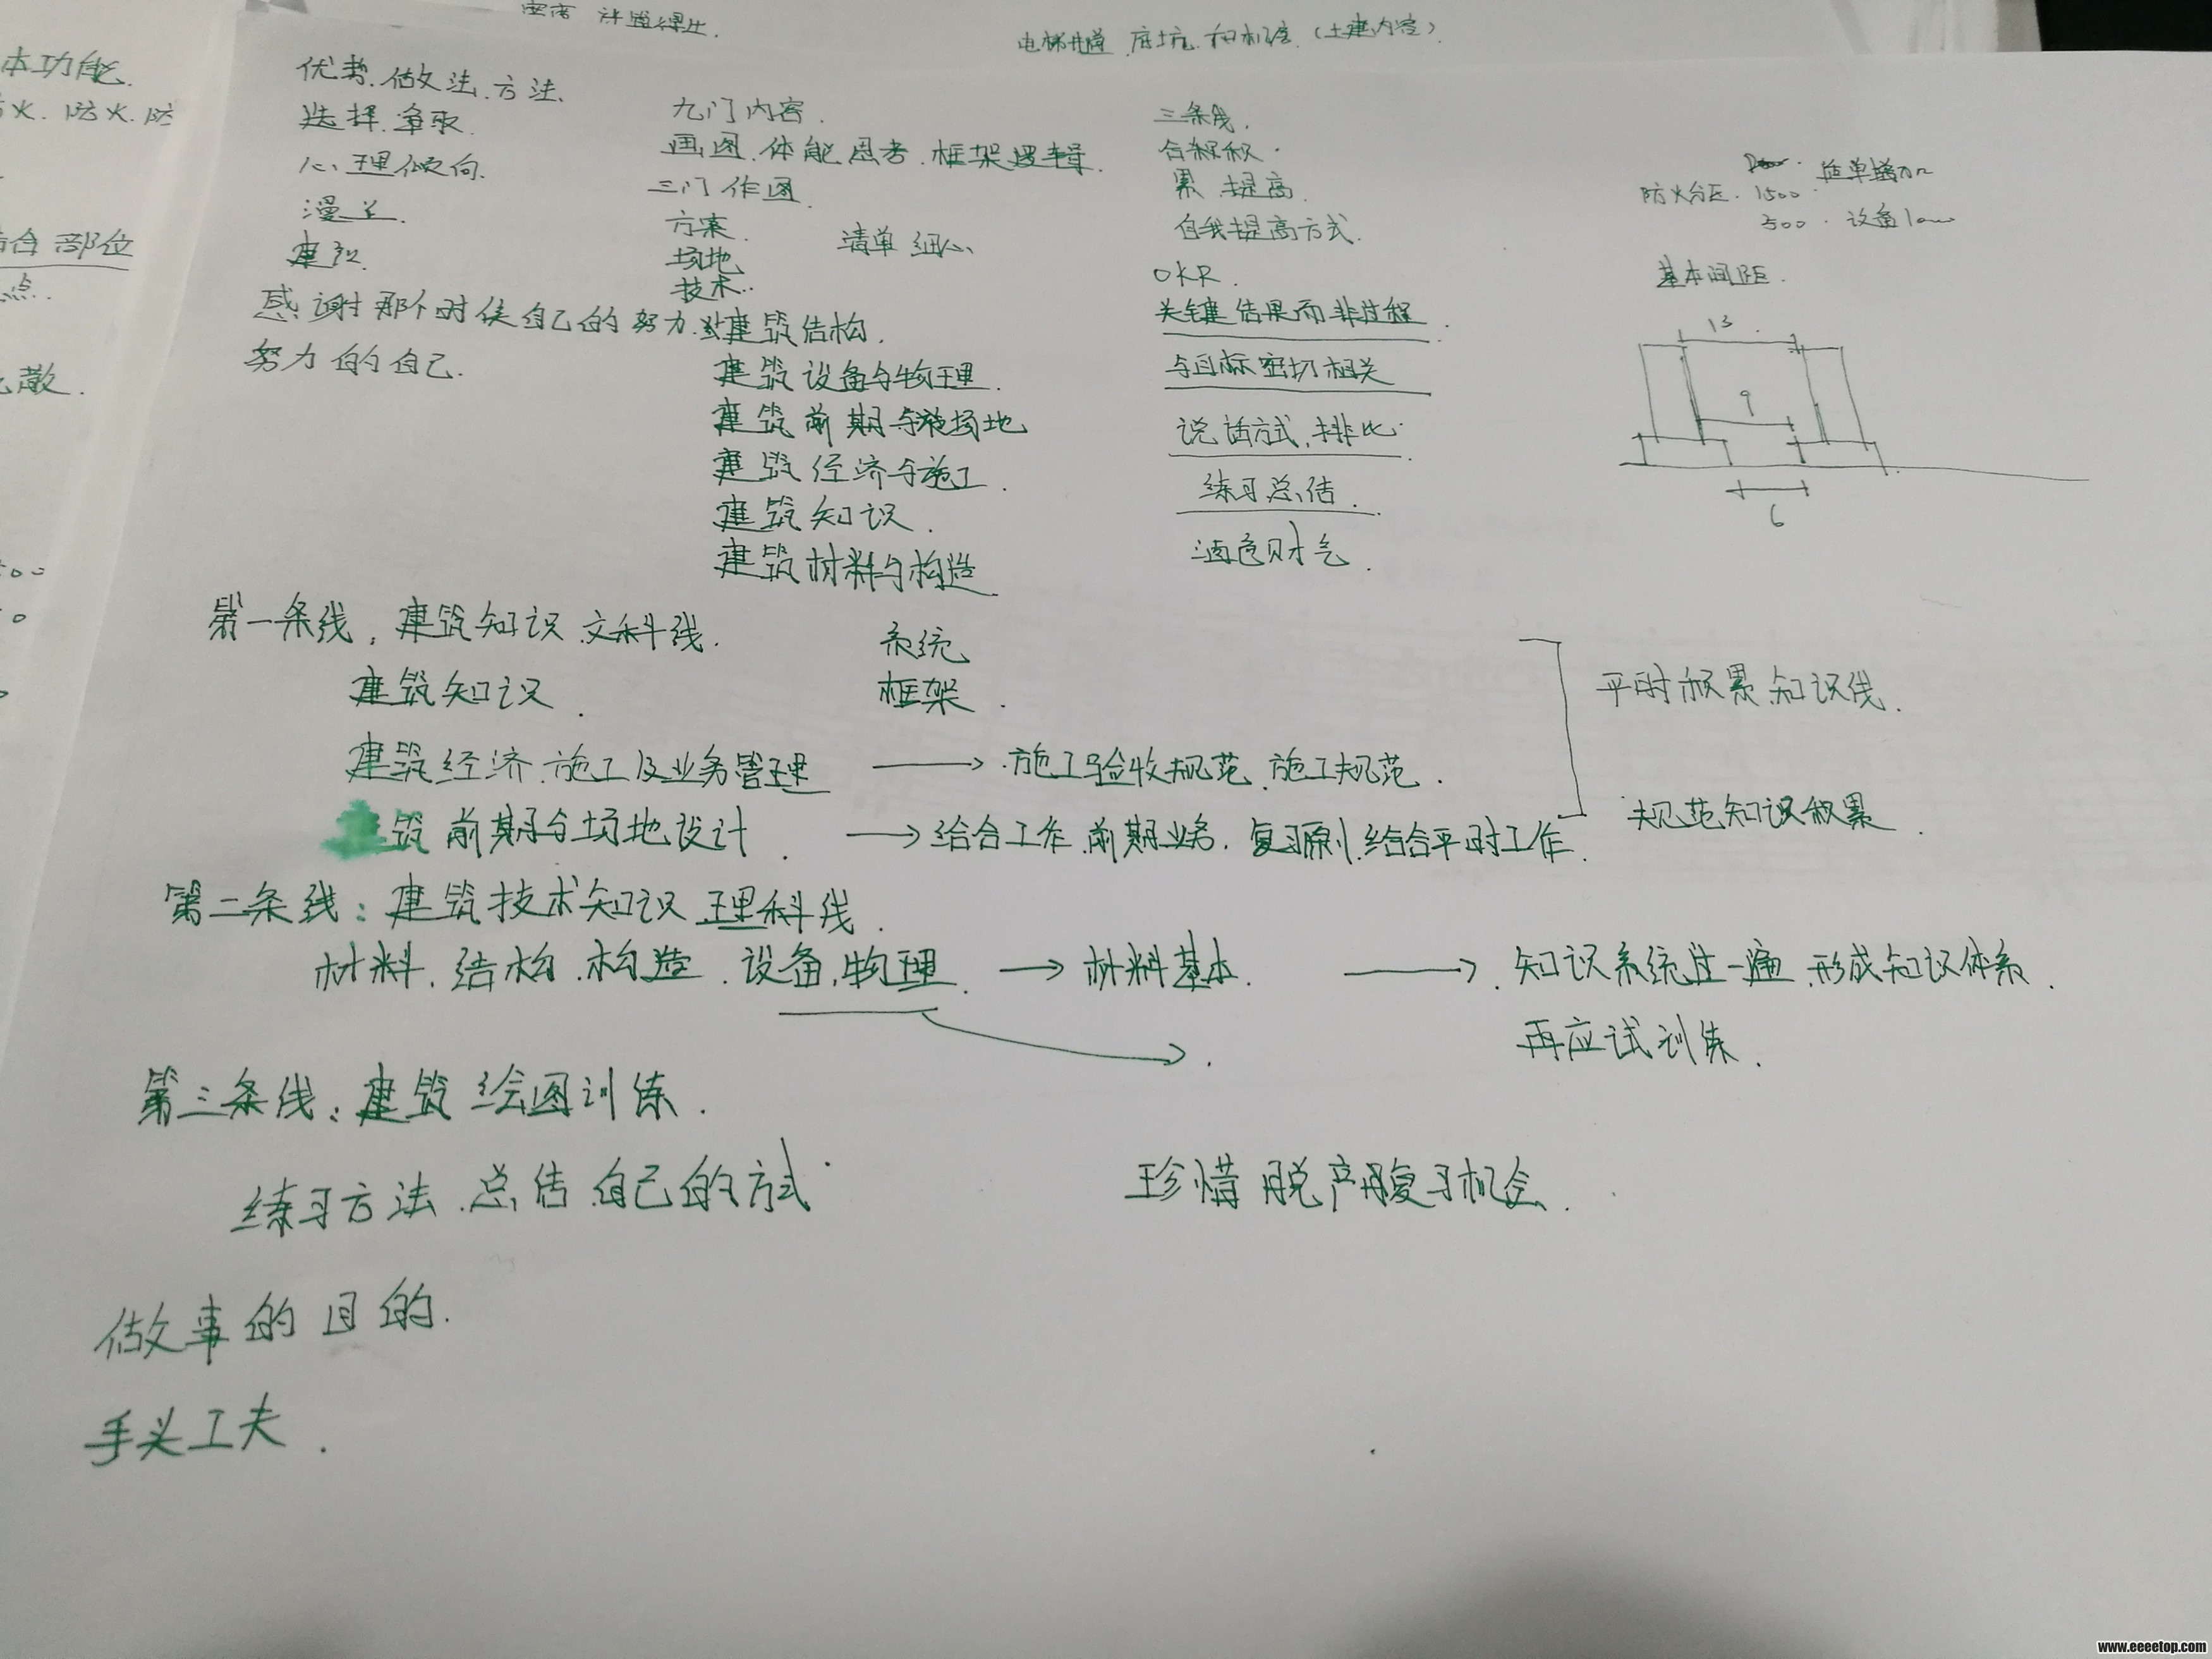 电梯井道.底坑.和机房.(土建内容).
本功能.
火.防火.防
合部位
点.
散.
优势.做法.方法.
选择.争取.
心理倾向.
漫谈.
建议.
感谢那个时候自己的努力.
努力的自己.
九门内容.
画图.体能思考.框架逻辑.
三门作图.
方案.
场地 清单 细心
技术..
建筑结构.
建筑设备与物理.
建筑前期与场地
建筑经济与施工.
建筑知识.
建筑材料与构造
三条线.
累 提高.
自我提高方式.
OKR.
关键结果而非过程.
与目标密切相关
说话方式.排比.
练习总结.
酒色财气.
防火分区.1500.
500.设备1000
基本间距.
13
9
6
第一条线.建筑知识.文科线.
系统
框架.
建筑知识.
建筑经济.施工及业务管理 → .施工验收规范.施工规范.
筑前期与场地设计. → 结合工作.前期业务.复习原则.结合平时工作.
平时积累知识线.
规范知识积累.
第二条线:建筑技术知识 理科线.
材料.结构.构造.设备.物理. → 材料基本. → .知识系统过一遍.形成知识体系.
再应试训练.
第三条线:建筑绘图训练.
练习方法.总结.自己的方式 珍惜脱产复习机会.
做事的目的.
手头工夫.
www.eeeetop.com